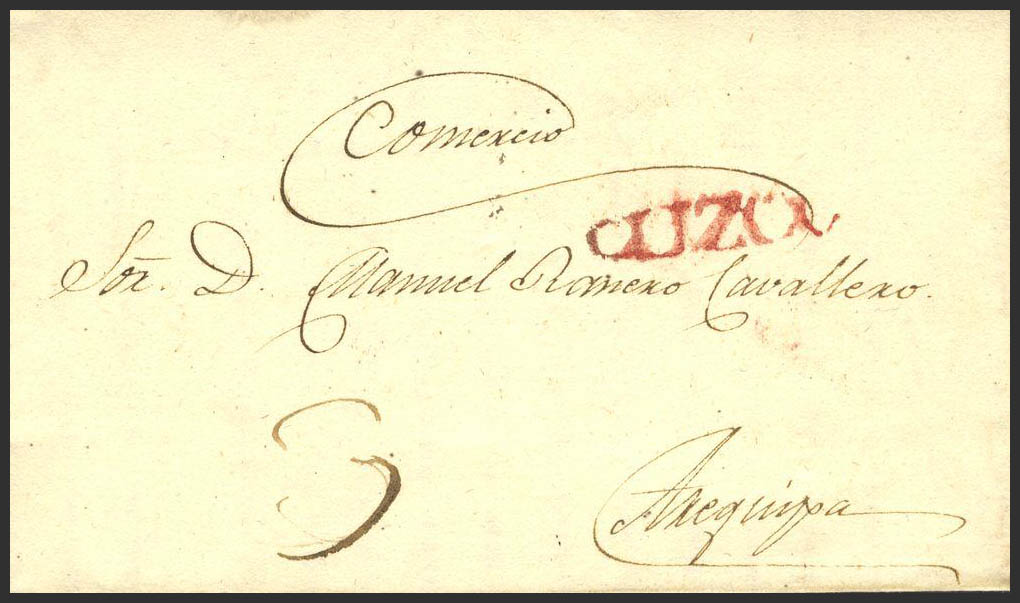 Comercio
CUZCO
Sor. D. Manuel Romero Cavallero.
3
Arequipa